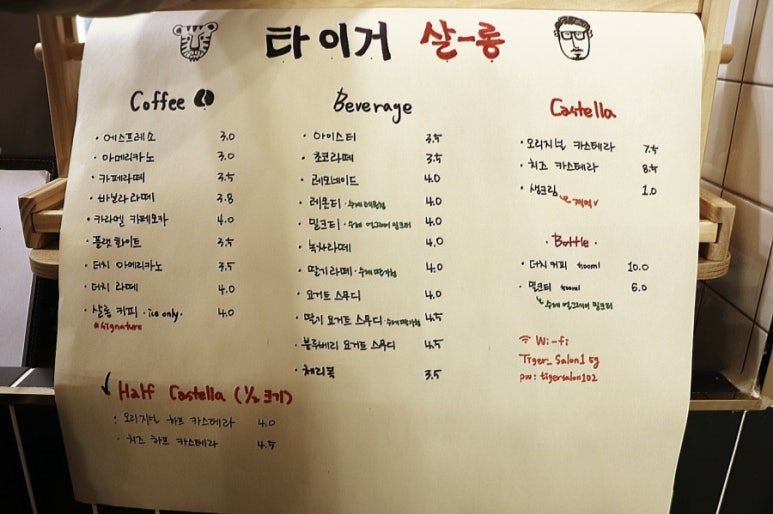 타이거 살-롱
Coffee
· 에스프레소 3.0
· 아메리카노 3.0
· 카페라떼 3.5
· 바닐라라떼 3.8
· 카라멜 카페모카 4.0
· 플랫 화이트 3.5
· 더치 아메리카노 3.5
· 더치 라떼 4.0
· 살롱 커피 · ice only · 4.0
Signature
Half Castella (1/2 크기)
· 오리지널 하프 카스테라 4.0
· 치즈 하프 카스테라 4.5
Beverage
· 아이스티 3.5
· 초코라떼 3.5
· 레모네이드 4.0
· 레몬티 · 수제 레몬청 4.0
· 밀크티 · 수제 얼그레이 밀크티 4.0
· 녹차라떼 4.0
· 딸기라떼 · 수제 딸기청 4.0
· 요거트 스무디 4.0
· 딸기 요거트 스무디 · 수제 딸기청 4.5
· 블루베리 요거트 스무디 4.5
· 체리콕 3.5
Castella
· 오리지널 카스테라 7.5
· 치즈 카스테라 8.5
· 생크림 1.0
· Bottle ·
· 더치커피 10.0
· 밀크티 6.0
수제 얼그레이 밀크티
Wi-fi
Tiger_Salon1 5g
pw: tigersalon102